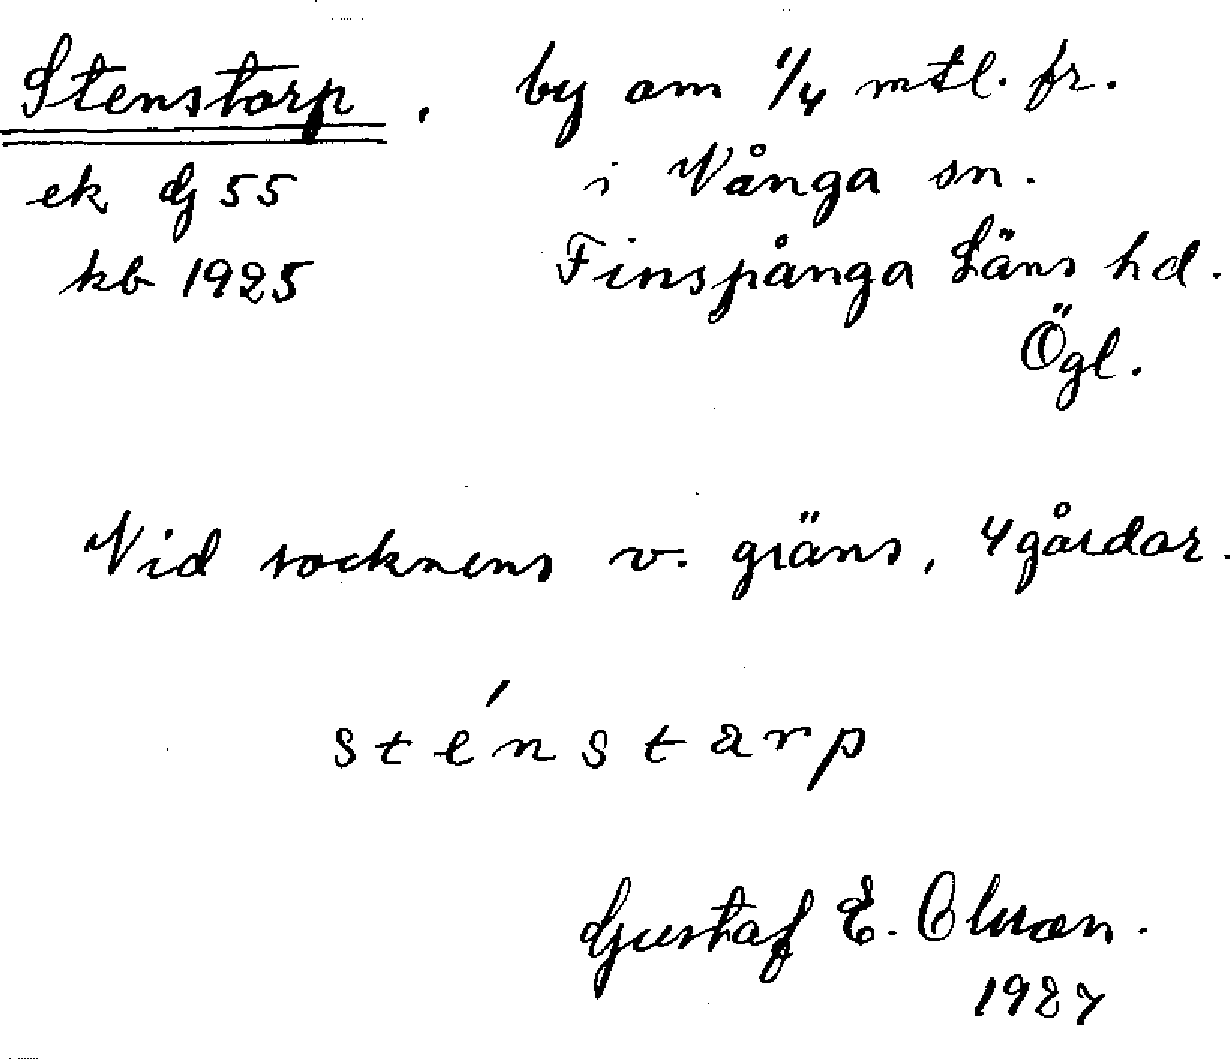 Stenstorp. by om 1/4 mtl. fr.
ek dj 55 i Vånga sn.
kb 1925 Finspånga Läns hd.
Ögl.
Vid socknens v. gräns, 4 gårdar.
sténstarp
Gustaf E. Olsson.
1927